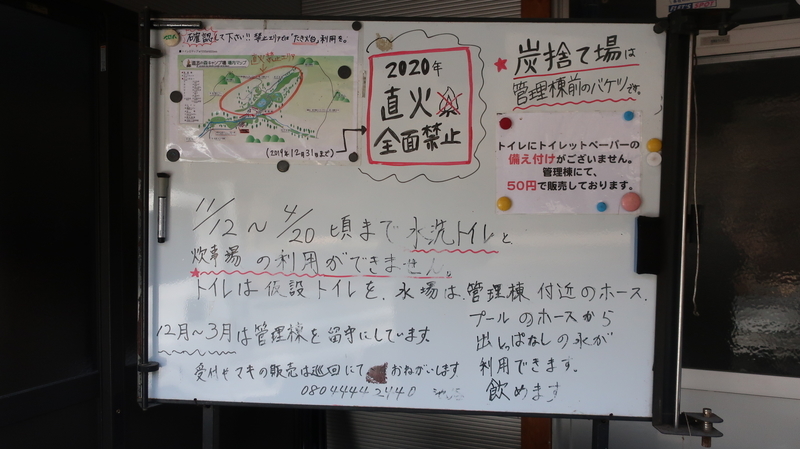 確認して下さい!! 禁止エリアは「たき火台」利用を。
直火禁止エリア
(2019年12月31日まで)
2020年
直火
全面禁止
★炭捨て場は
管理棟前のバケツです。
トイレにトイレットペーパーの
備え付けがございません。
管理棟にて、
50円で販売しております。
11/12～4/20 頃まで 水洗トイレと
炊事場の利用ができません。
★トイレは仮設トイレを、水場は、管理棟付近のホース.
プールのホースから
出しっぱなしの水が
利用できます。
飲めます
12月～3月は管理棟を留守にしています
受付やマキの販売は巡回にて おねがいします
080 4444 2440